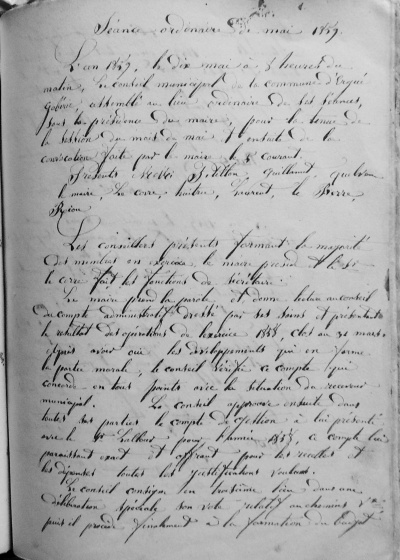 Séance ordonaire de mai 1859.
L'an 1859, le dix mai à 5 heures du
matin, le conseil municipal de la commune d'Ergué
Gabéric, assemblé au lieu ordonaire de ses séances,
sous la présidence du maire, pour la tenue de
la session du mois de mai et ensuite de la
convocation faite par le maire le courant.
Présents Guillamet,
le maire, Le corre, Laurent, le
Les conseillers présents formant la majorité
des membres en exercice, le maire prend
le corre fait les fonctions de secrétaire.
Le maire prend la parole et donne lecture au conseil
du compte administratif dressé par ses soins et présentant
le résultat des opérations de l'exercice 1858, clos au 31 mars.
Après avoir ouï les développements qui en forme
la partie morale, le conseil vérifie ce compte qui
concorde en tous points avec la situation du receveur
municipal. Le conseil approuve ensuite dans
toutes ses parties le compte de gestion à lui présenté
par l'année 1858, ce compte lui
paraissant exact et offrant pour les recettes et
les dépenses toutes les justifications voulues.
Le conseil consigne en troisième lieu dans une
délibération spéciale son vote relatif au chemins
puis il procède finalement à la formation du budget